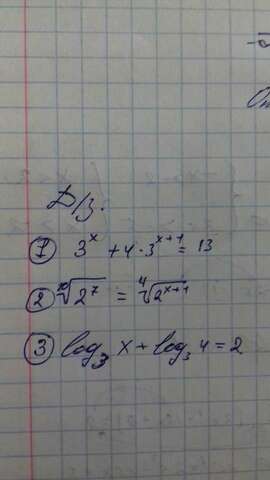 Д/З.
① 3^x + 4 · 3^(x+1) = 13
② ¹⁰√(2⁷) = ⁴√(2^(x+1))
③ log₃ x + log₃ 4 = 2